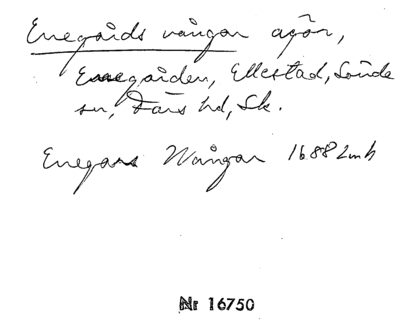 Enegårds vångar agör,
Enegården, Ellestad, Sönde
sn, Färs hd, Sk.
Enegars Wångar 1688 Lmh
Nr 16750